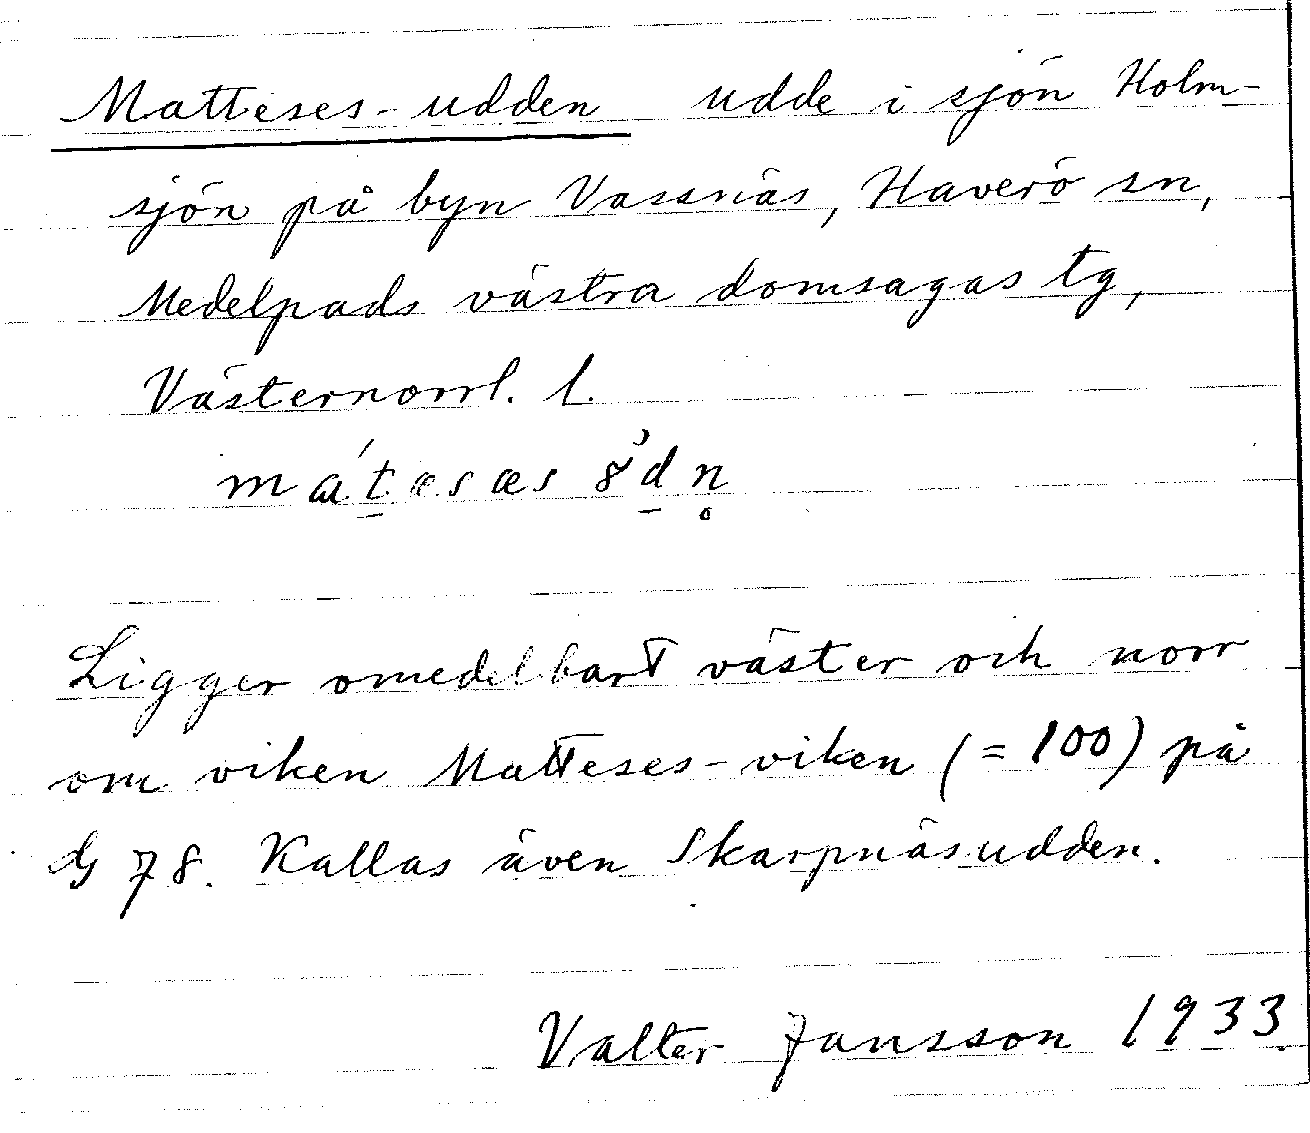 Matteses-udden udde i sjön Holm-
sjön på byn Vassnäs, Haverö sn,
Medelpads västra domsagas tg,
Västernorrl. l.
Ligger omedelbart väster och norr
om viken Matteses-viken (= 100) på
G 78. Kallas även Skarpnäsudden.
Valter Jansson 1933.